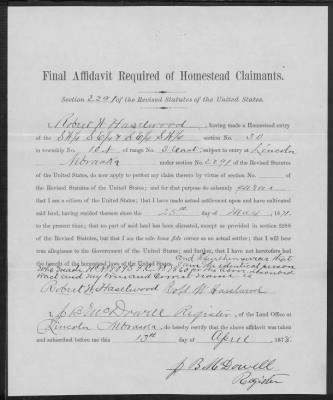 Final Affidavit Required of Homestead Claimants.
Section 2291 of the Revised Statutes of the United States.
I, Robert W. Haselwood, having made a Homestead entry
of the section No. 30
in township No. 10 N of range No. 3 East, subject to entry at Lincoln
Nebraska under section No. 2291 of the Revised Statutes
of the United States, do now apply to perfect my claim thereto by virtue of section No.
of the Revised Statutes of the United States; and for that purpose do solemnly swear
that I am a citizen of the United States; that I have made actual settlement upon and have cultivated
said land, having resided thereon since the 25th day of May, 1871,
to the present time; that no part of said land has been alienated, except as provided in section 2288
of the Revised Statutes, but that I am the sole bona fide owner as an actual settler; that I will bear
true allegiance to the Government of the United States; and further, that I have not heretofore had
the benefit of the homestead laws of the United States. and I further swear that
I am the identical person
who made
Robert W. Haselwood Robt W Haselwood
I, J B McDowell, Register, of the Land Office at
Lincoln Nebraska, do hereby certify that the above affidavit was taken
and subscribed before me this 13th day of April, 187
J B McDowell
Register